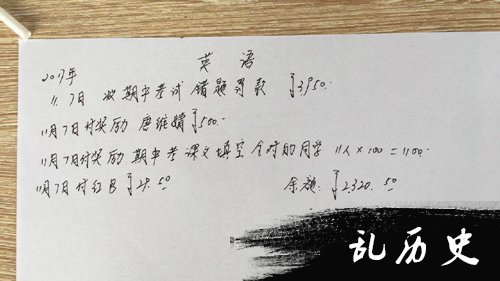 英 语
2017年
11.7日 收 期中考试 错题罚款 ¥3950.-
11月7日付奖励 唐维 ¥500.-
11月7日付奖励 期中考课文填空 全对的同学 11人×100=1100.-
11月7日 付红包 ¥29.50 余额: ¥2320.50
乱历史